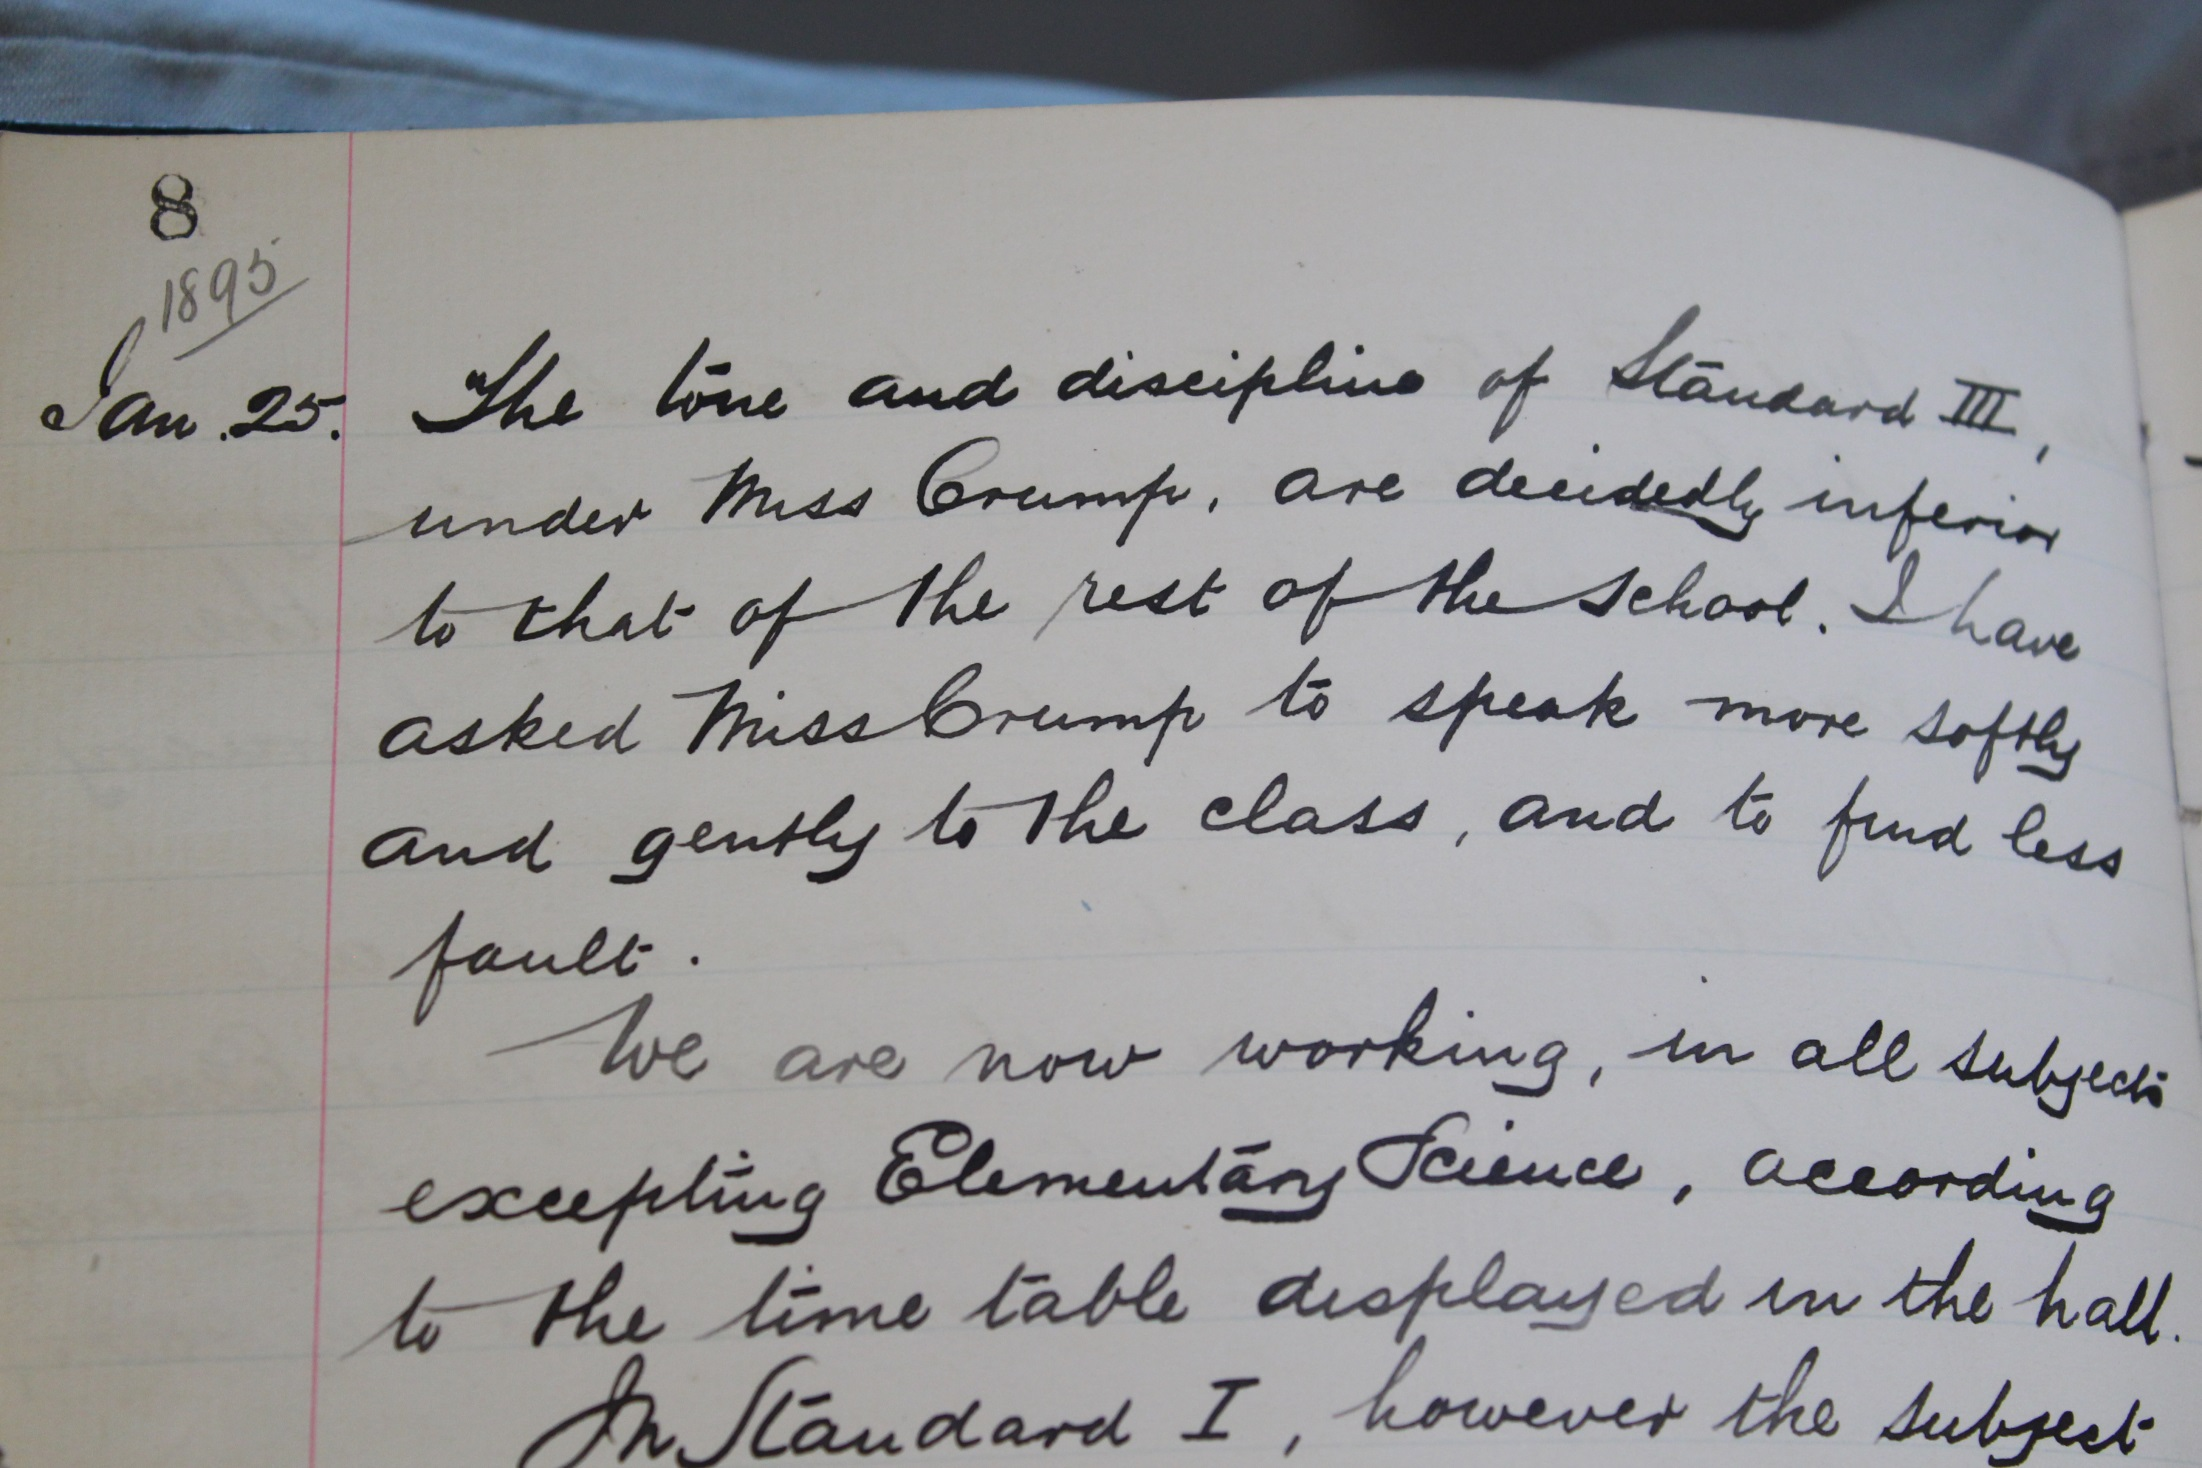 8
1895
Jan. 25. The tone and discipline of Standard III,
under Miss Crump, are decidedly inferior
to that of the rest of the school. I have
asked Miss Crump to speak more softly
and gently to the class, and to find less
fault.
We are now working, in all subjects
excepting Elementary Science, according
to the time table displayed in the hall.
In Standard I, however the subject